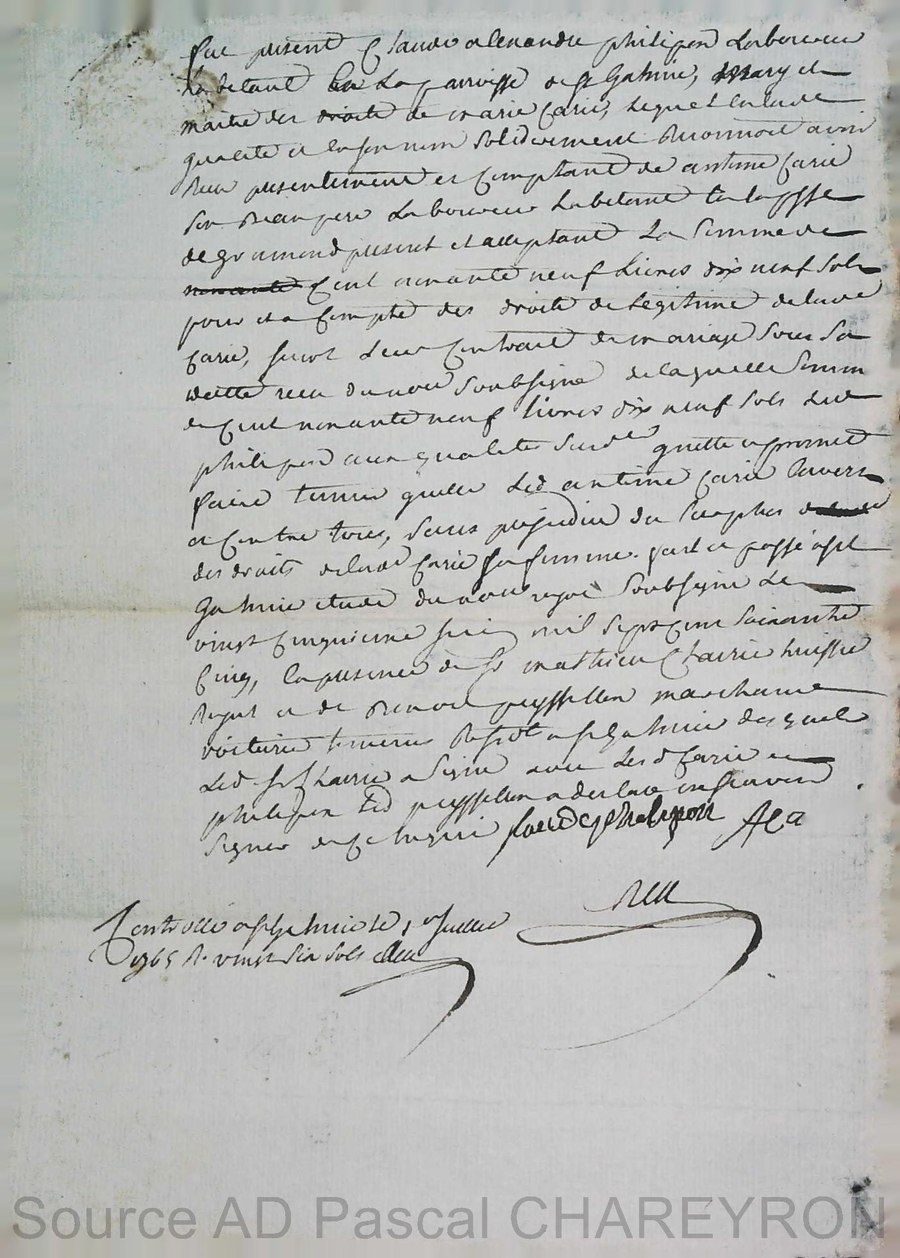 fut present Claude alexandre philipon Laboureur
habitant en La parroisse de st Galmier, Mary et
maitre des droits de marie Carie, lequel en lade
qualité et en son nom solidairement Reconnoit avoir
Receu presentement et Comptant de antoine Carie
son Beaupere Laboureur habitant en la psse
de gramond present et acceptant La Somme de
Cent nonante neuf Livres dix neuf Sols
pour et a Compte des droits de Legitime de lade
Carie, suivt Leur Contrat de mariage Sous Sa
datte receu du nore Soubsigné de laquelle Somm
de Cent nonante neuf Livres dix neuf Sols led
philipon aux qualités Susdes quitte et promet
faire tenir quitte Led antoine Carie Envers
et Contre tous, Sans prejudice du Surplus
des droits de lade Carie Sa femme. fait et passé a st
Galmier etude du nore royal Soubsigné Le
vingt Cinquieme juin mil Sept Cent Soixante
Cinq, En presence de Sr mathieu Charrie huissie
Royal et de Benoit peyssellon marchand
voiturie temoins Residt a st Galmier des quels
Led Sr Charrie a Signé avec Led Carie et
philipon Led peyssellon a declaré ne Scavoir
Signer de Ce Enquis Claude philipon ACa
Controllé a st Galmier le 1er Juillet
1765 R. vingt Six Sols
Source AD Pascal CHAREYRON